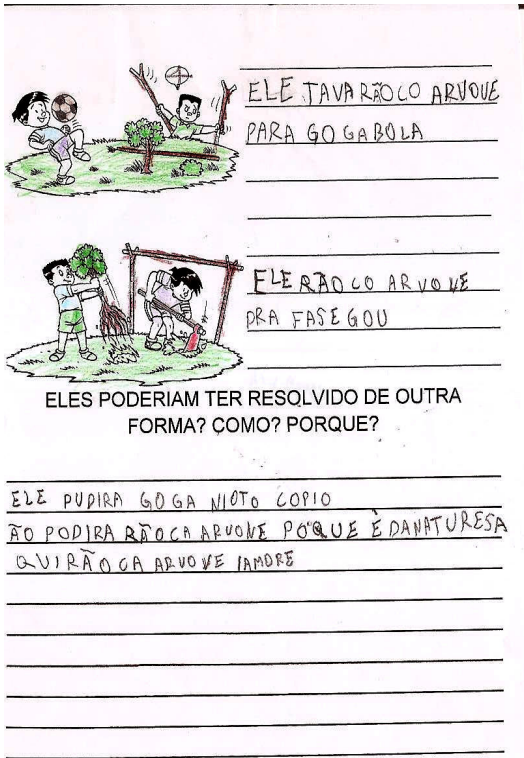 ELE TAVA RÃOCO ARVOVE
PARA GOGABOLA
ELE RÃOCO ARVOVE
PRA FASE GOU
ELES PODERIAM TER RESOLVIDO DE OUTRA
FORMA? COMO? PORQUE?
ELE PUDIRA GOGA NIOTO COPIO
ÃO PODIRA RÃOCA ARVOVE POQUE È DANATURESA
QUIRÃOCA ARVOVE IAMORE